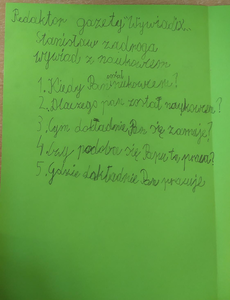 Redaktor gazety Wywiadx..
Stanisław zadroga
wywiad z naukowcem
1. Kiedy Pan został naukowcem?
2. Dlaczego pan został naukowcem?
3. Czym dokładnie Pan się zajmuje?
4. Czy podoba się Panu ta praca?
5. Gdzie dokładnie Pan pracuje